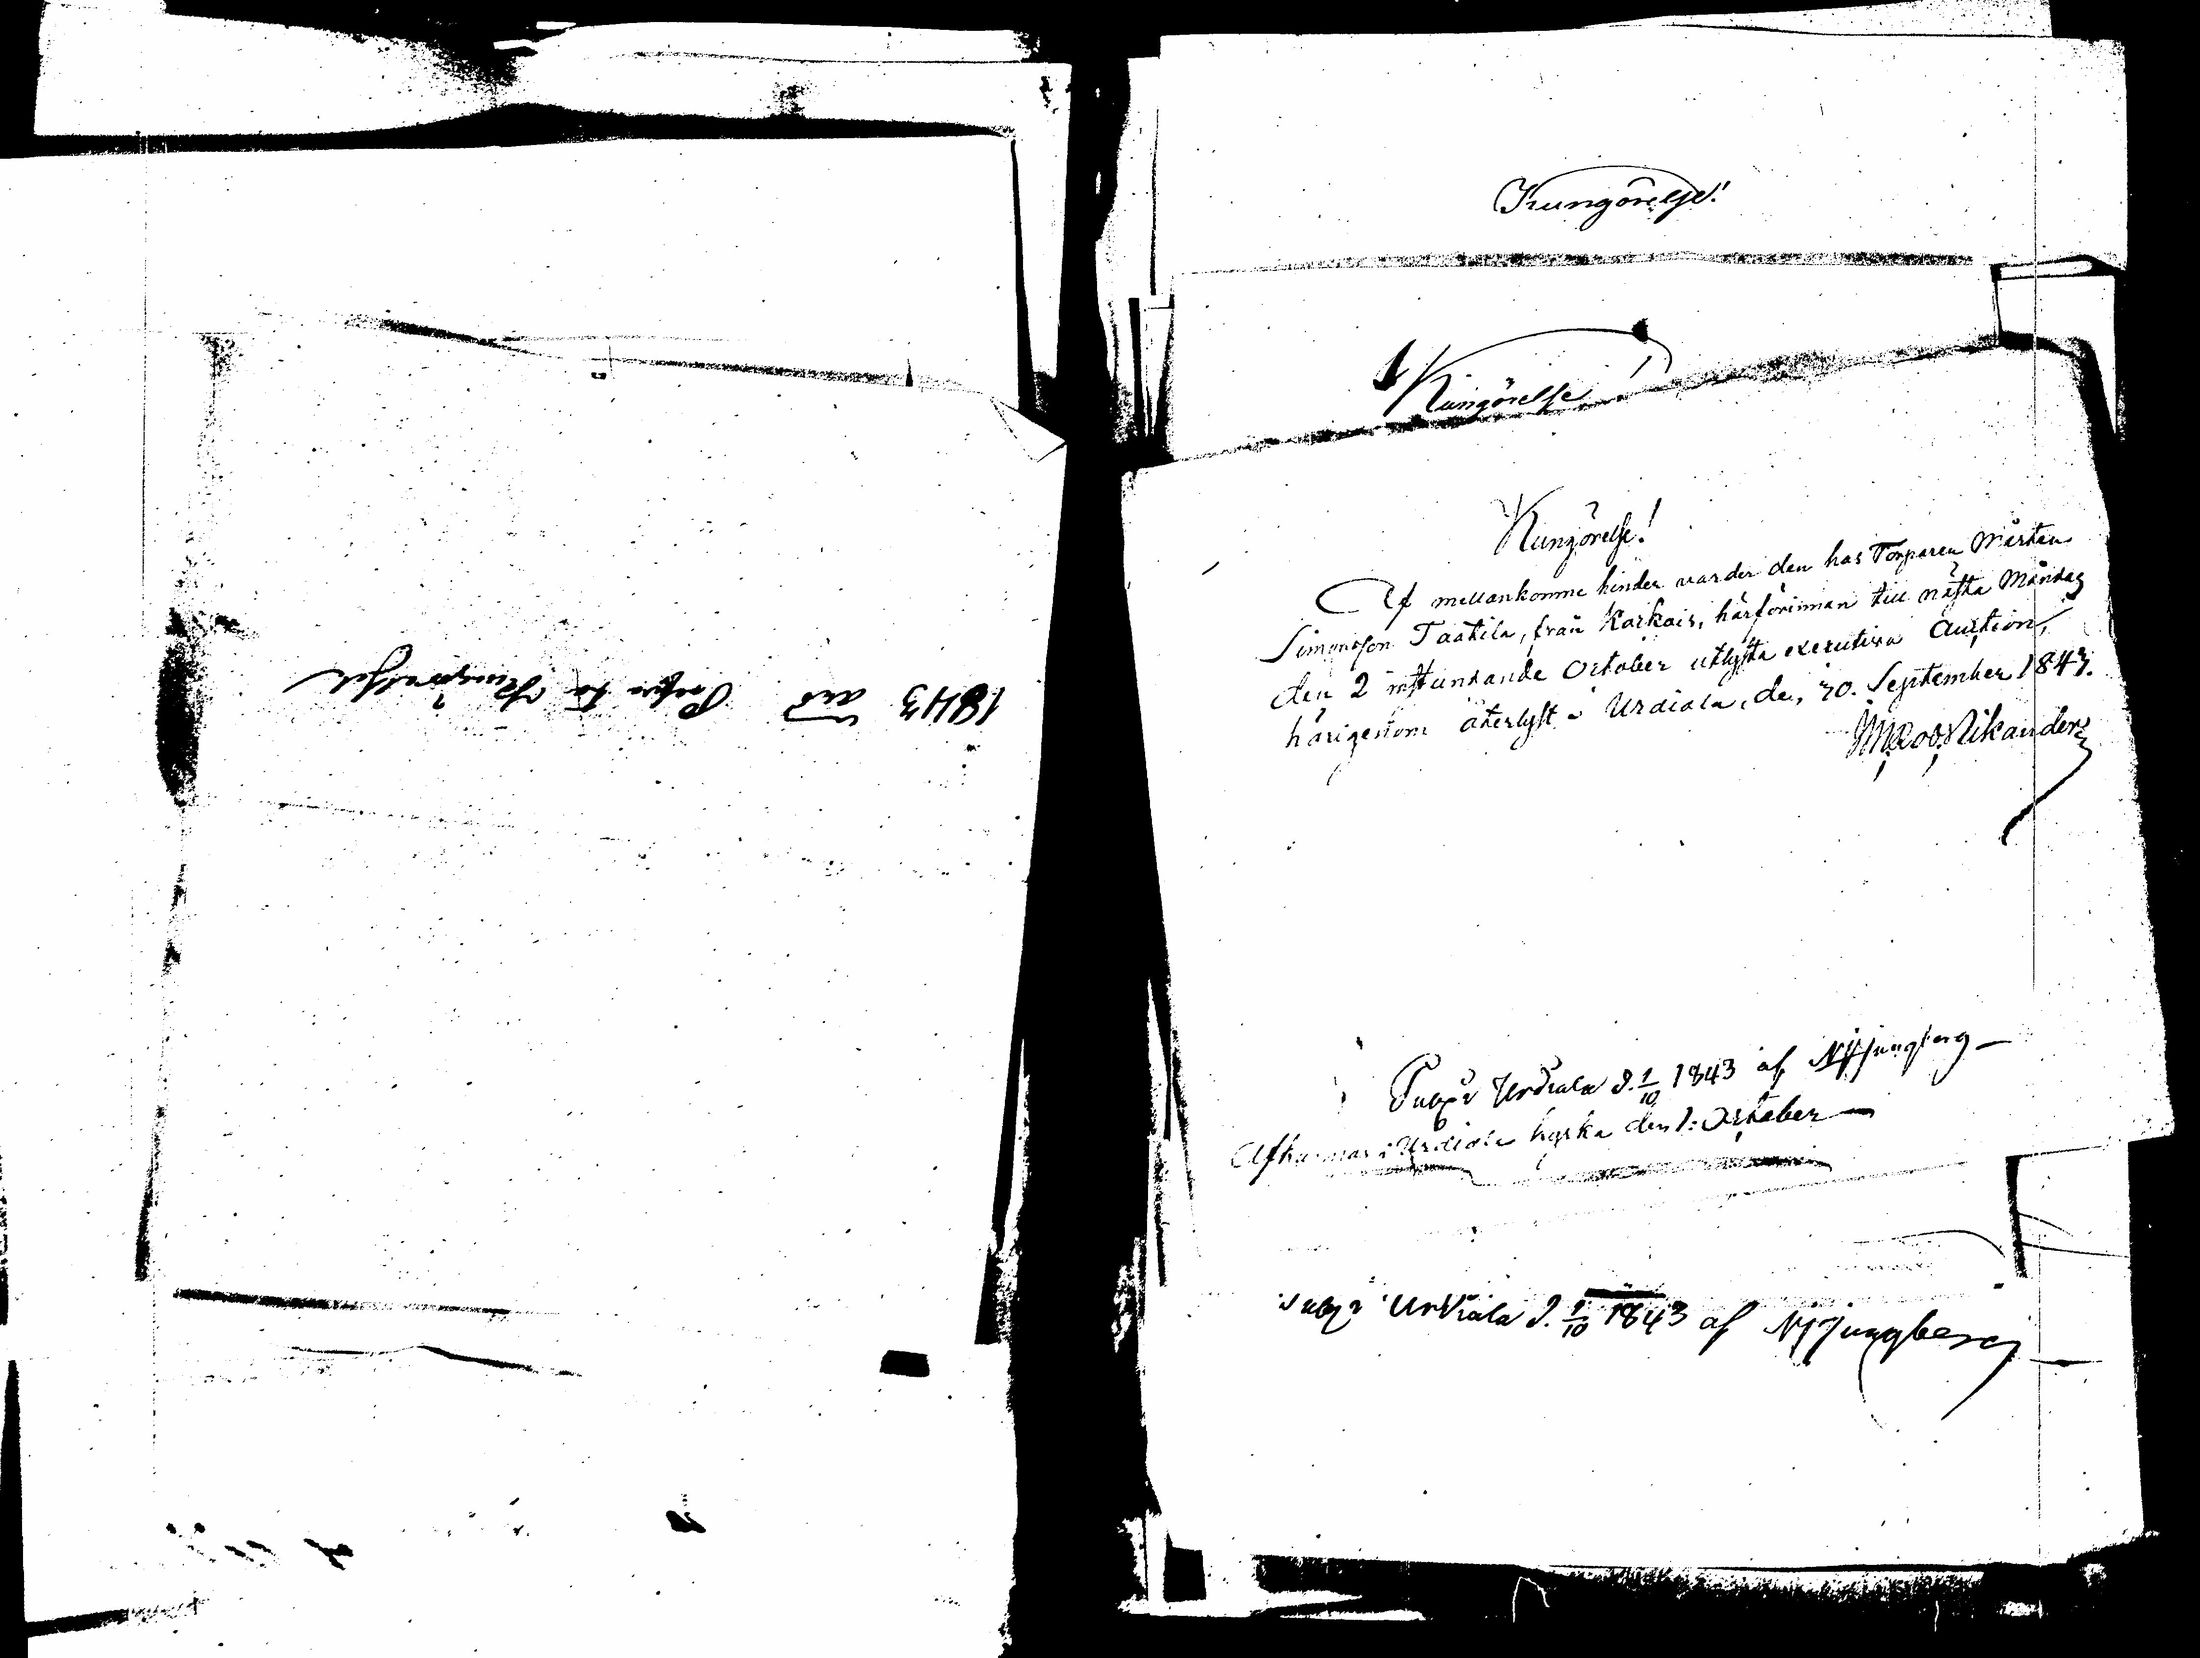 1843 års
Kungörelse!
Kungörelse!
Kungörelse!
Af mellankomne hinder varder den hos Torparen Mårten
Simonsson Taatila, från Karkais, härförinnan till nästa Måndag
den 2 instundande October utlysta executiva Auction,
härigenom återlyst i Urdiala, den 30. September 1843.
Nikander
Urdiala d. 1/10 1843 af Ljungberg
i Urdiala kyrka den 1: October
Urdiala d. 1/10 1843 af Ljungberg